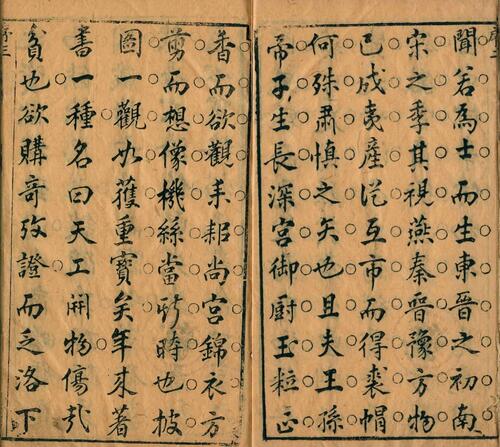 聞若為士而生東晉之初南
宋之季其視燕秦晉豫方物
已成夷產從互市而得裘帽
何殊肅慎之矢也且夫王孫
帝子生長深宮御廚玉粒正
香而欲觀耒耜尚宮錦衣方
剪而想像機絲當斯時也披
圖一觀如獲重寶矣年來著
書一種名曰天工開物傷哉
貧也欲購奇攷證而乏洛下
序三